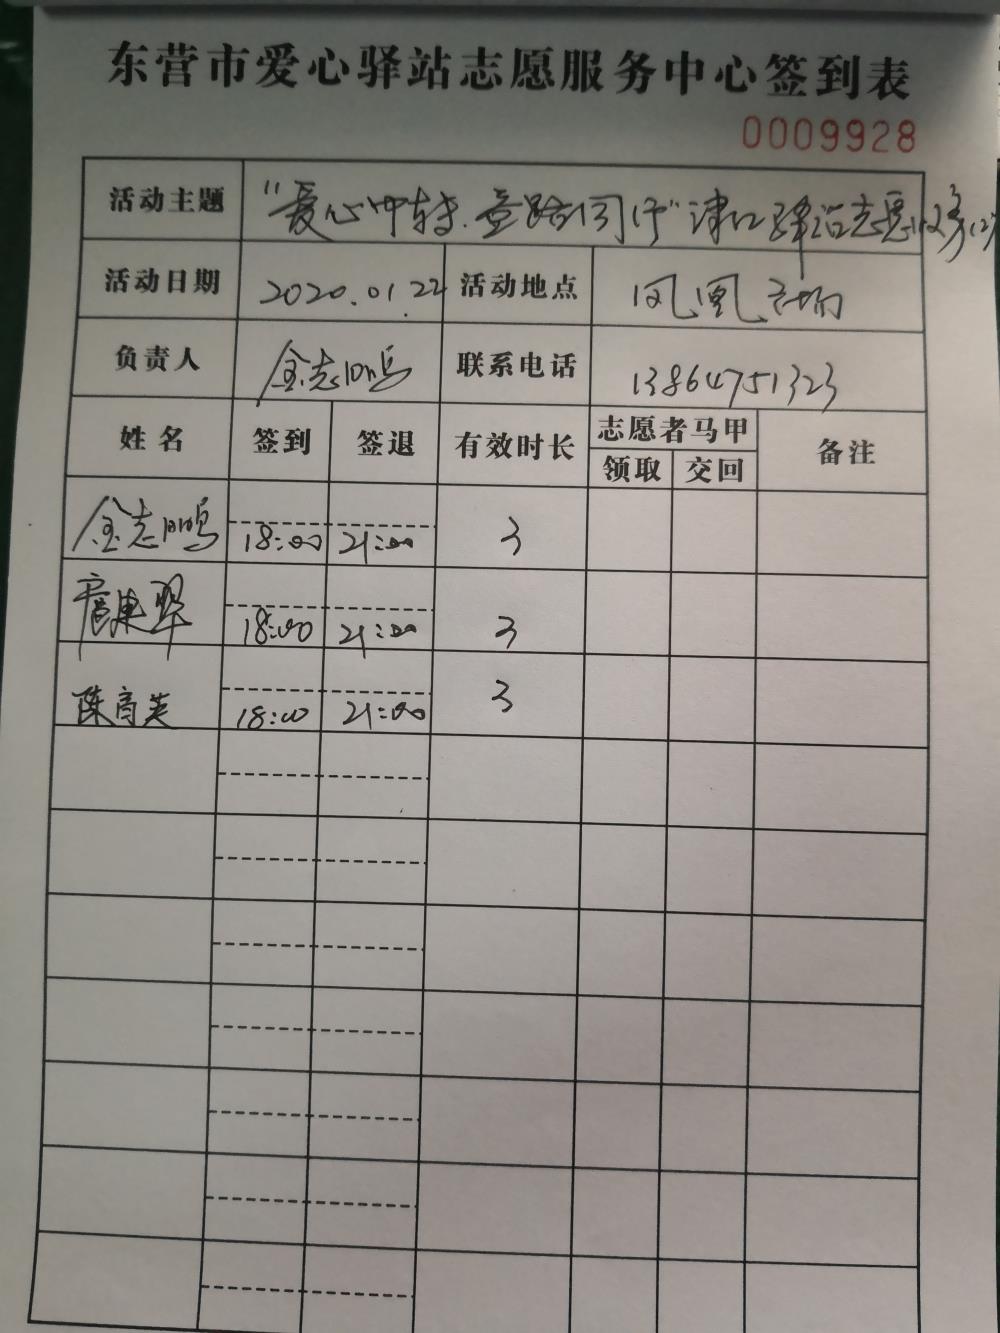 东营市爱心驿站志愿服务中心签到表
0009928
活动主题 "爱心中转.壹路同行"津口驿站志愿服务(2)
活动日期 2020.01.22 活动地点 凤凰广场
负责人 金志鹏 联系电话 13864751323
姓名 签到 签退 有效时长 志愿者马甲 备注
领取 交回
金志鹏 18:00 21:00 3
18:00 21:00 3
陈育英 18:00 21:00 3